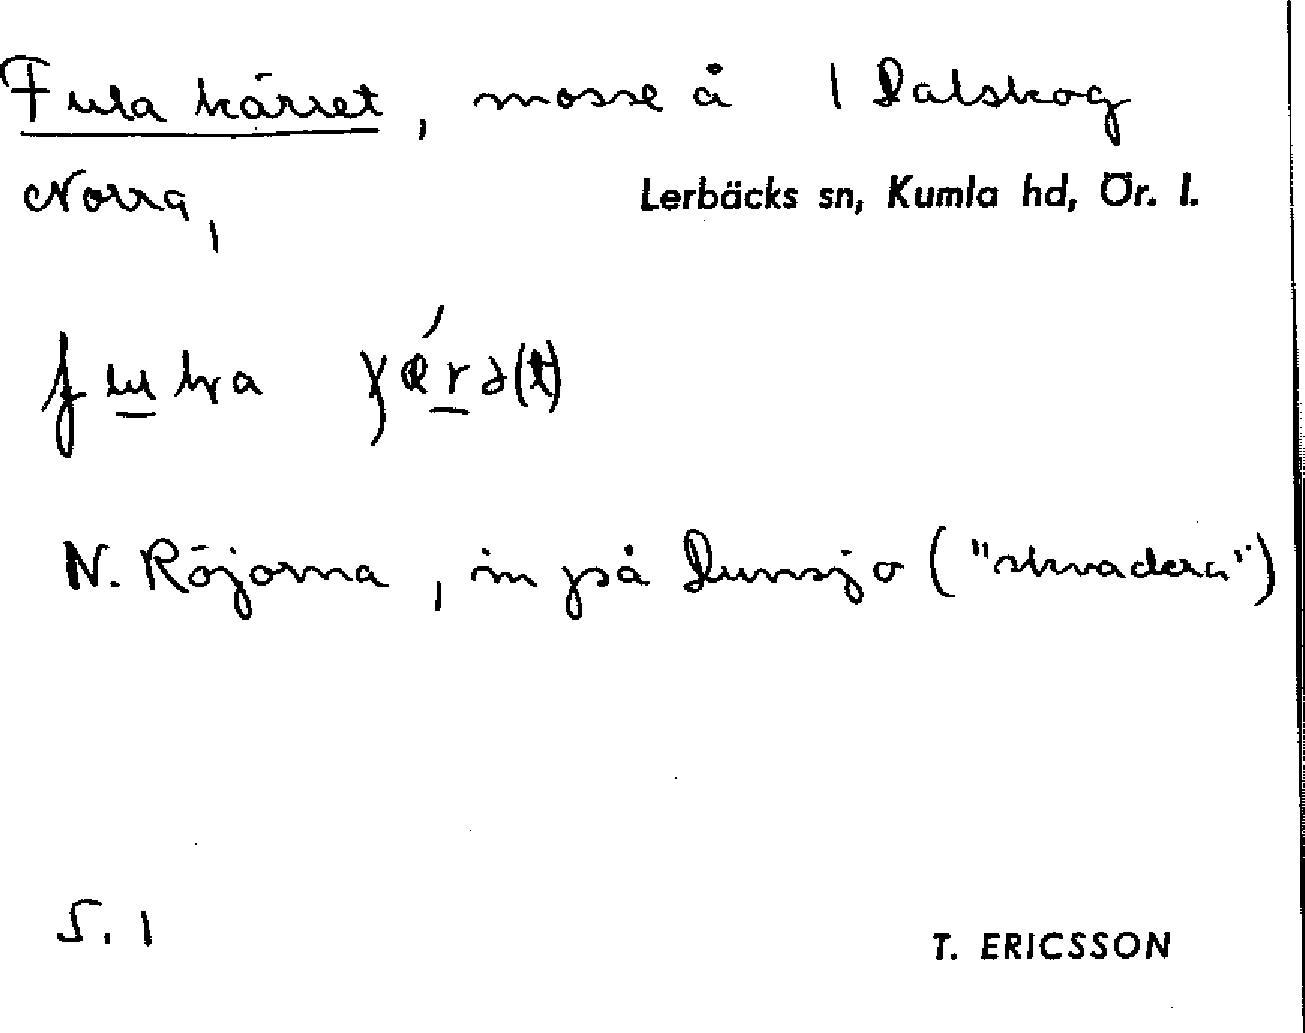 Fula kärret, mosse å 1 Dalskog
Norra,
Lerbäcks sn, Kumla hd, Ör. l.
N. Röjorna, in på Dunsjö ("skvadera")
S. 1
T. ERICSSON